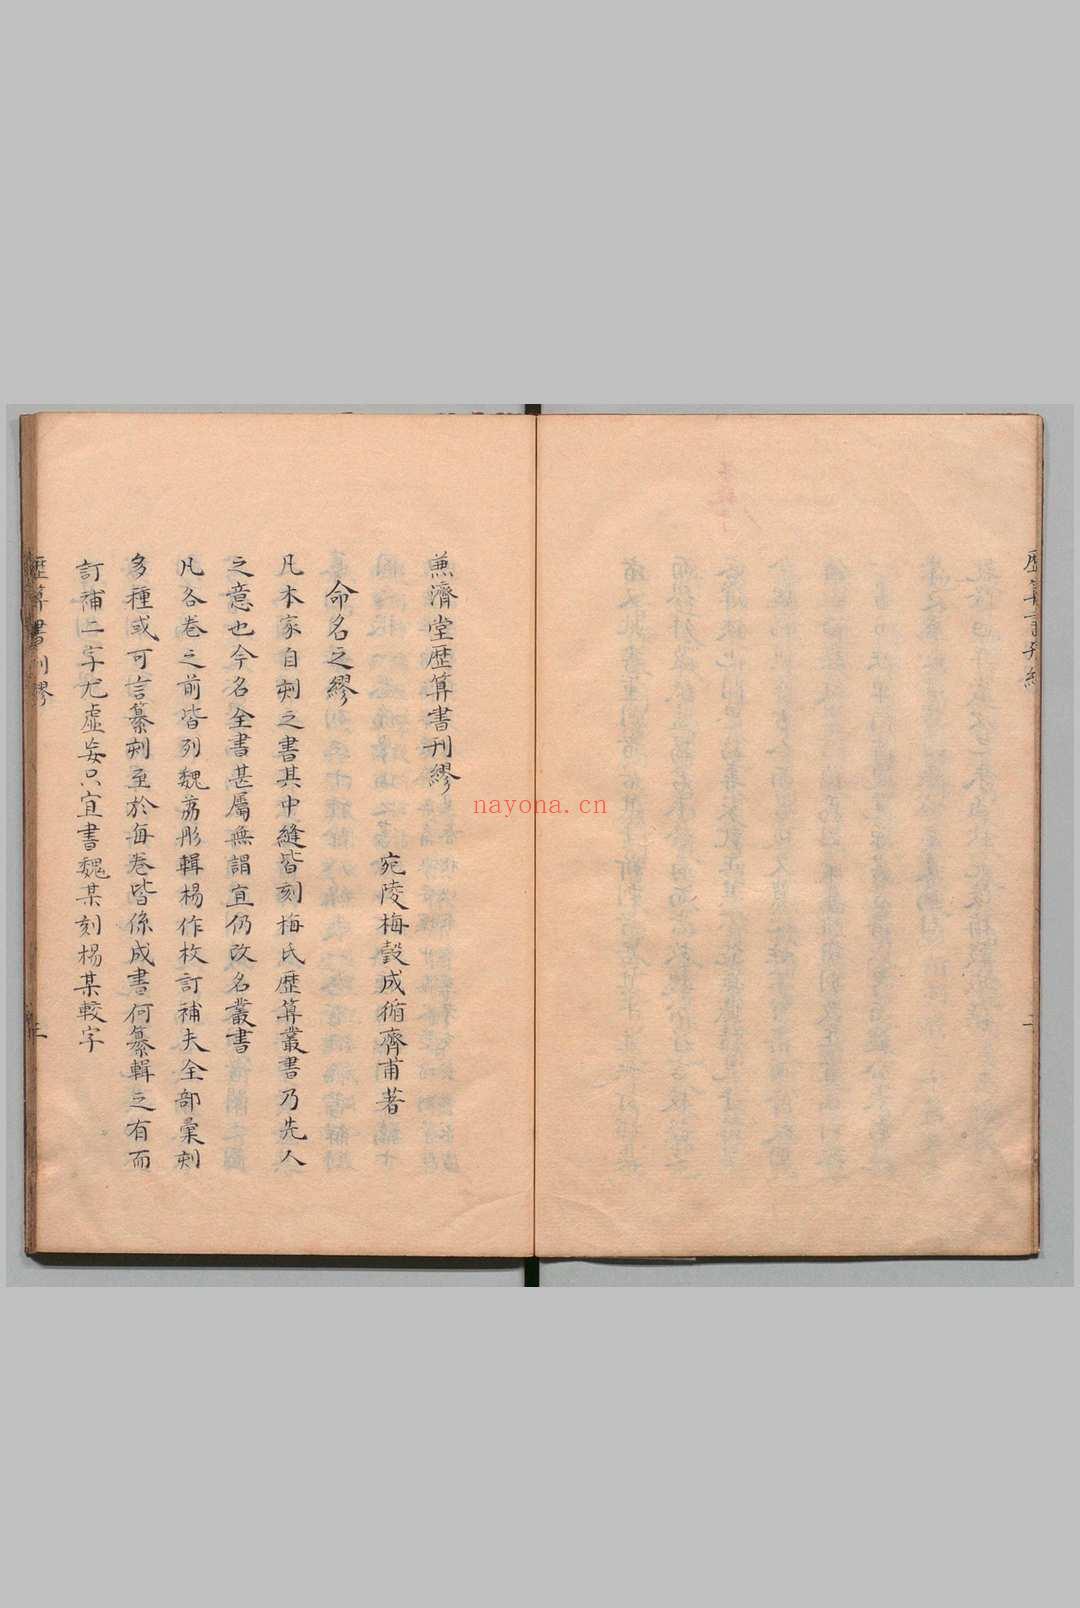 歴算書刊繆
兼濟堂歴算書刊繆
宛陵梅瑴成循齊甫著
命名之繆
凡本家自刻之書其中縫皆刻梅氏歴算叢書乃先人
之意也今名全書甚屬無謂宜仍改名叢書
凡各卷之前皆列魏荔彤輯楊作枚訂補夫全部彙刻
多種或可言纂刻至於每卷皆係成書何纂輯之有而
訂補二字尤虛妄只宜書魏某刻楊某較字
歴算書刊繆
nayona.cn